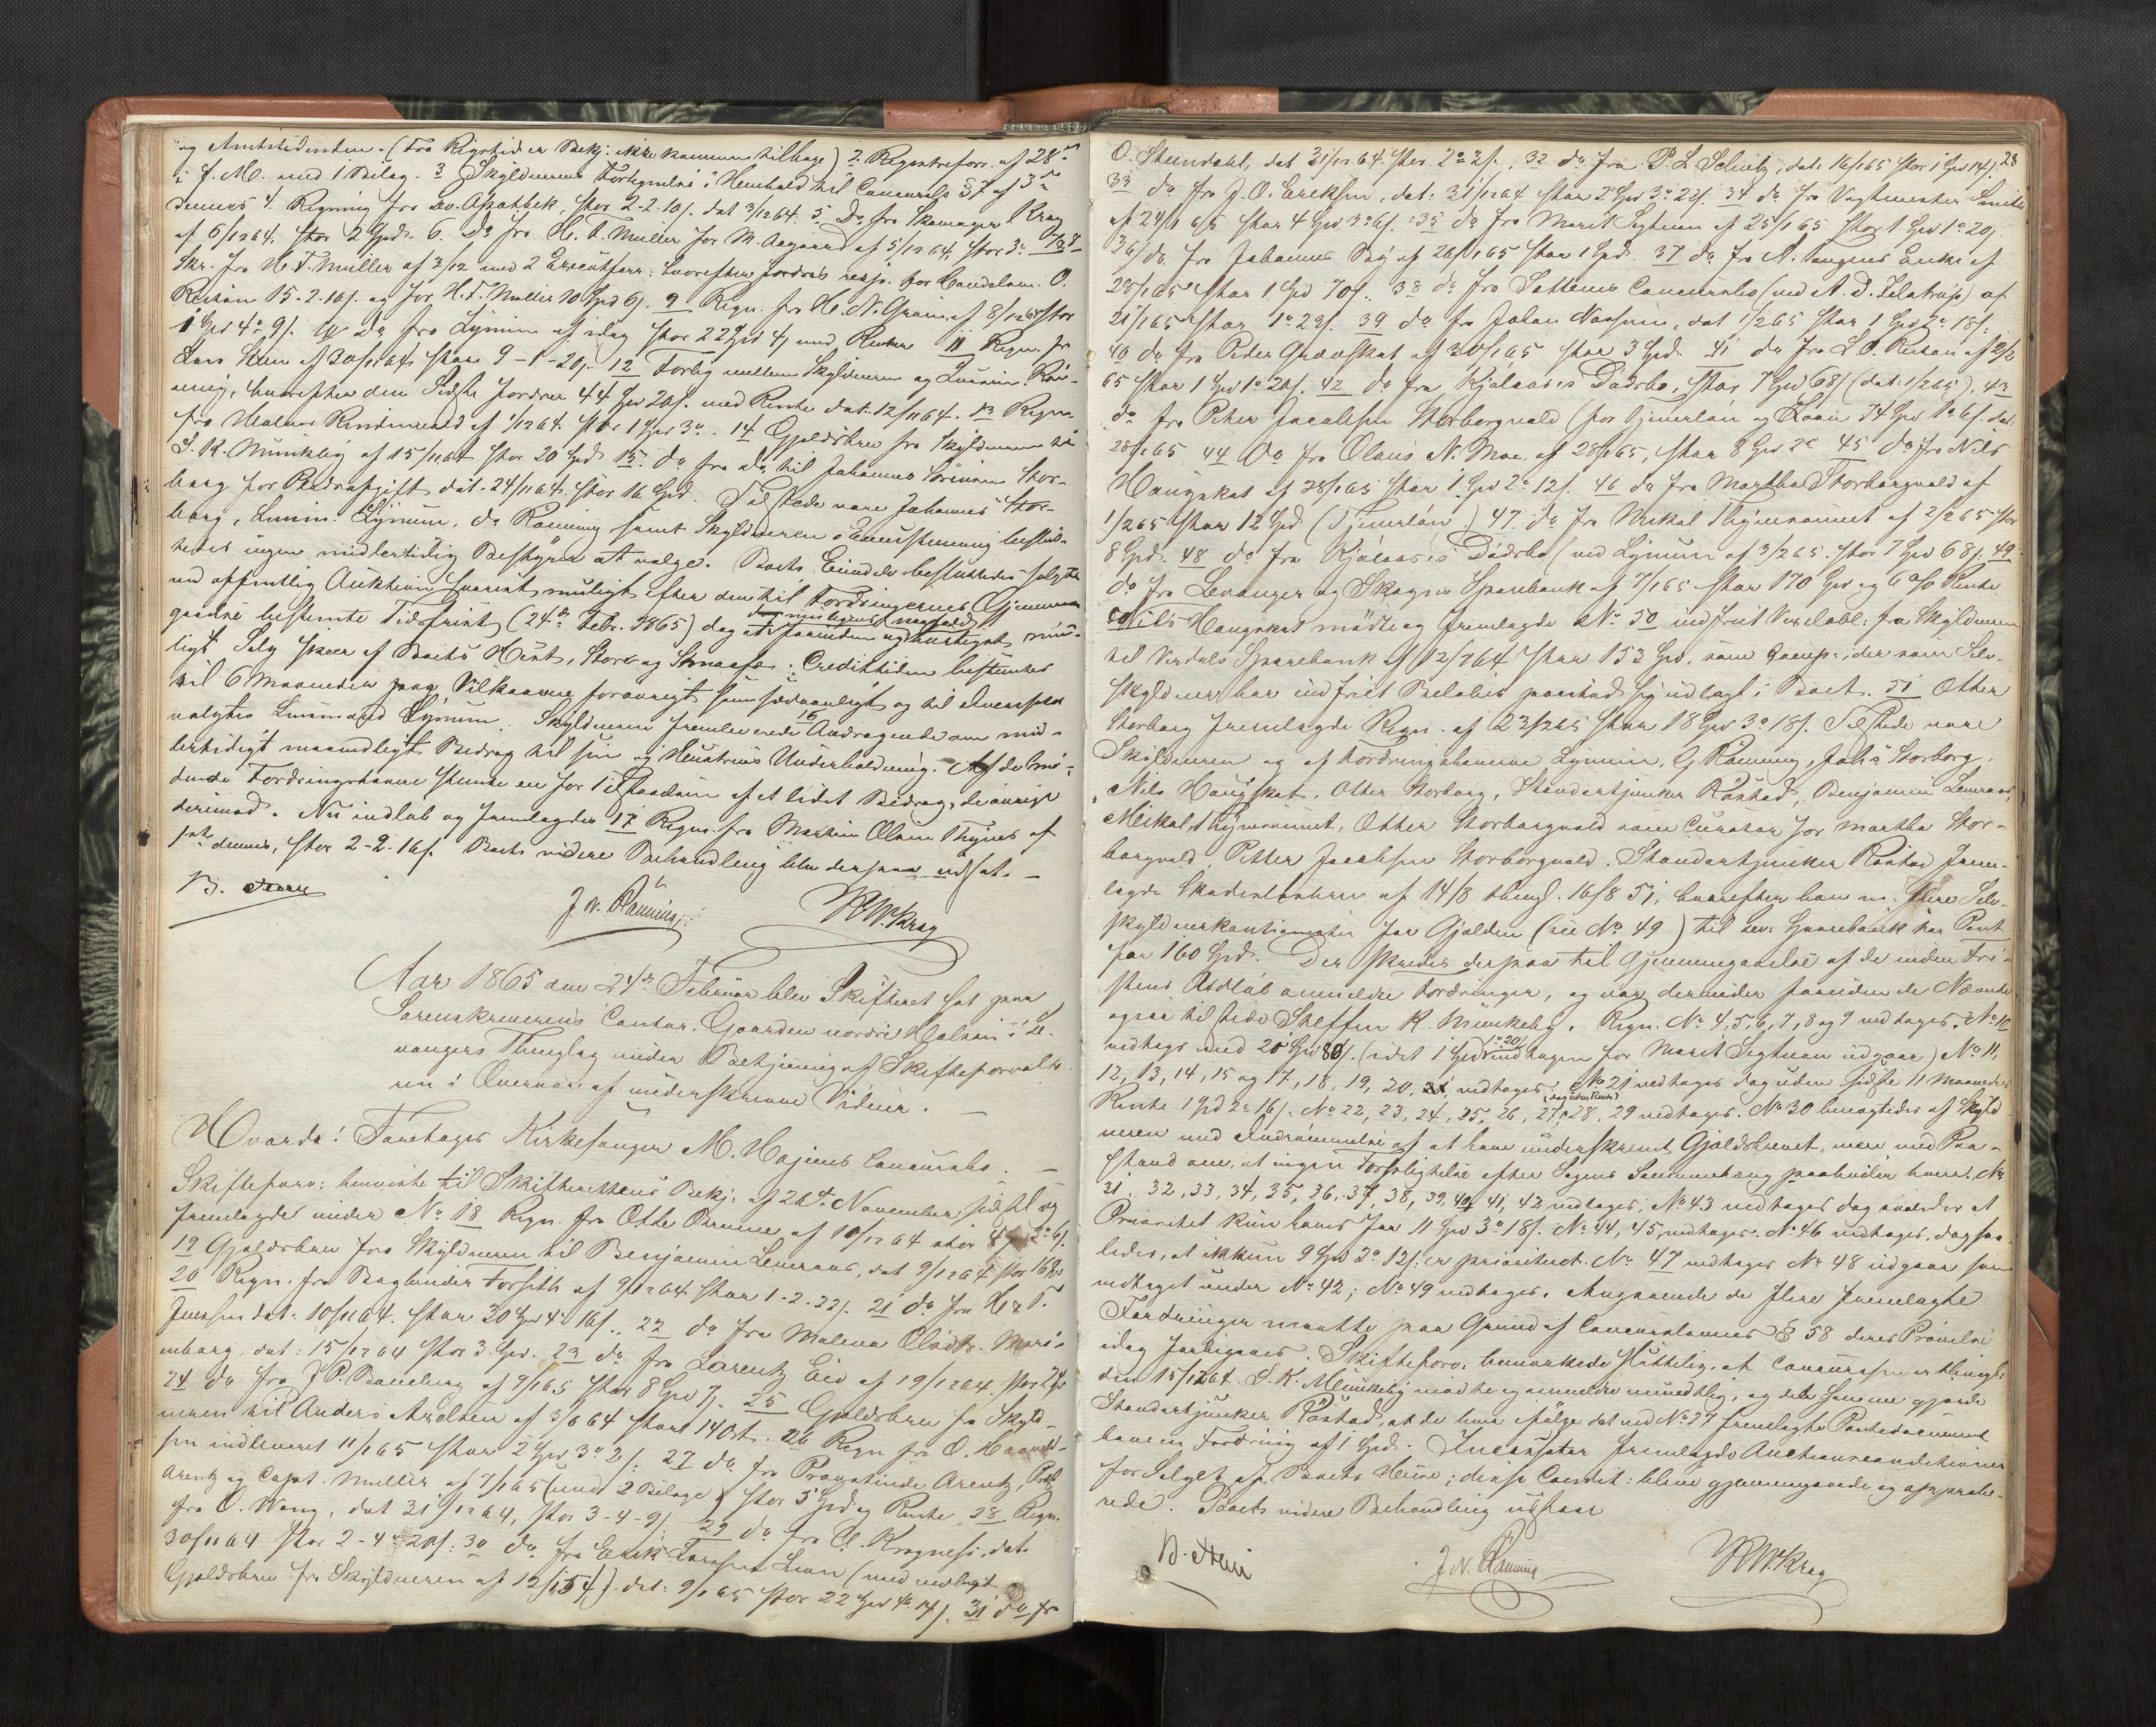 og Amtstidenden. (Fra Rigstid er Bekj: ikke kommen tilbage) 2. Registreforr. af 28de
i f. M. med 1 Bilag. 3 Skyldnerens Fortegnelse i Henhold til Concursl. § 7 af 3die
dennes 4. Regning fra Lev. Apothek, stor 2-2-10/. dat 3/12 64. 5. Do. fra Skomager Krag
af 6/12 64. stor 2 Spd. 6. Do fra H. T. Muller for M. Aagaard af 5/12 64, stor 3o
fra H. T. Müller af 3/12 med 2 : hvorefter fordres resp. for Handelsm. O.
Rostan 15-2-10/. og for H. T. Muller 10 Spd 6/. 9 Regn. fra H. N. Grøn. af 8/12 64 stor
1 Spd 4o 9/. 10 Do fra Lynum af idag stor 22 Spd 4/ med Renter 11 Regn. fr
Lars Steen af 30/11 64 stor 9-1-20/. 12 Forlig mellem Skyldneren og Lensm. Røn-
ning, hvorefter den Sidste fordrer 44 Spd 20/. med Renter dat: 12/11 64. 13 Regn.
fra Malena Rindemvald af 1/12 64 stor 1 Spd 3o. 14 Gjældsbrev fra Skyldneren til
S. K. Munkeby af 15/11 64 stor 20 Spd. 15. do fra do til Johannes Sørensen Stor-
borg for Bødrafgift dat. 24/11 64. stor 16 Spd. Tilstede vare Johannes Stor-
borg, Lensm. Lynum, do Rønning samt Skyldneren. I Eensstemming beslut-
tedes ingen midlertidig Bestyrer at vælge. Boets Eiendele besluttedes solgte
ved offentlig Auktion snarest muligt efter den til Fordringernes Gjennem-
gaaelse bestemte Tidsfrist (24de Febr. 1865) dog at saavidt muligt
ligt Salg skeer af Boets Hest, Storf. og Smaafæ. Credittiden bestemtes
til 6 Maaneder paa Vilkaarene forøvrigt som sædvanligt og til Incassator
valgtes Lensmand Lynum. Skyldneren fremleverede 16 Andragende om mid-
lertidigt maanedligt Bidrag til sin og Hustrues Underholdning. Af de mø-
dende Fordringshavere stemte en for Tilstaaelsen af et lidet Bidrag, de øvrige
derimod. Nu indløb og fremlagdes 17 Regn. fra Martin Olsen Thynes af
1ste dennes, stor 2-2-16/. Boets videre Behandling blev derpaa udsat.
B. Steen
J. N. Rønning
W. M. Krag
Aar 1865 den 24de Februar blev Skifteret sat paa
Sorenskriverens Contor Gaarden nordre Halsan i Le-
vangers Thinglag under Betjening af Skifteforvalte-
ren i Overvær af underskrevne Vidner.
Hvorda: Foretages Kirkesanger M. Hojems Concursbo.
Skifteforv: henviste til Skifterettens Bekj: af 26de November sidstl og
fremlagde under No. 18 Regn. fra Otte af 10/12 64 stor 4 2o 6/.
19 Gjældsbrev fra Skyldneren til Benjamin Leveraas, dat 9/12 64 stor 16 Spd
20 Regn. fra Bogbinder Forseth af 9/12 64 stor 1-2-22/. 21 do fra H. T.
Iversen dat: 10/11 64. stor 30 Spd 4o 16/. 22 do fra Malena Olsdtr. Mari-
enborg, dat: 15/12 64 stor 3 Spd. 23 do fra Lorentz Eid af 19/12 64. stor 24
24 do fra J. P. Bomberg af 9/1 65 stor 8 Spd 7/. 25 Gjældsbrev fra Skyld-
neren til Anders Axelsen af 3/6 64 stort 14 Ort. 26 Regn fra O. Haavel-
sen indleveret 11/1 65 stor 2 Spd 3o 2/. 27 do fra Provstinde Arentz, Prof
Arentz og Capt. Müller af 7/1 65 (med 2 Bilage) stor 5 Spd og Rente 28 Regn.
fra O. Wang, dat 31/12 64, stor 3-4-9/. 29 do fra C. Krognes, dat:
30/11 64 stor 2-4-20/. 30 do fra Erik Larssen Lien (med vedlagt
Gjældsbrev fra Skyldneren af 12/1 54). dat: 9/1 65 stor 22 Spd 4o 14/. 31 do fr
28
O. Stendahl, dat 31/12 64. stor 2o 2/. 32 do fra P. L. Schult, dat: 16/1 65 stor 1 Spd 14/.
33 do fra J. O. Eriksen, dat: 31/12 64 stor 2 Spd 3o 22/. 34 do fra Vagtmester Smith
af 24/1 65 stor 4 Spd 3o 6/. 35 do fra Marit Segtnan af 25/1 65 stor 1 Spd 1o 20/.
36 do fra Johannes By af 26/1 65 stor 1 Spd. 37 do fra A. Tangens Enke af
28/1 65 stor 1 Spd 70/. 38 do fra Settems Concursbo (ved A. D. Selstrup) af
21/1 65 stor 1o 22/. 39 do fra Johan Naasum, dat 1/2 65 stor 1 Spd 2o 18/.
40 do fra Peder Gravskat af 30/1 65 stor 3 Spd. 41 do fra L. O. Rostan af 2/2
65 stor 1 Spd 1o 20/. 42 do fra Kjølaas's Dødsbo, stor 7 Spd 68/ (dat: 1/2 65). 43
do fra Peter Jacobsen Storborgvald (for Tjenerløn og Laan 34 Spd 1o 6/. dat.
28/1 65 44 Do fra Olaus N. Moe af 28/1 65, stor 8 Spd 2o 45 do fra Nils
Haugskat af 28/1 65 stor 1 Spd 2o 12/. 46 do fra Martha Storborgvald af
1/2 65 stor 12 Spd (Tjenerløn.) 47. do fra Mekal Thynesaunet af 2/2 65 stor
8 Spd. 48 do fra Kjølaas's Dødsbo (ved Lynum af 3/2 65. stor 7 Spd 68/. 49
do fra Levanger og Skogns Sparebank af 7/1 65 stor 170 Spd og 6 % Rente.
Nils Haugskat mødte og fremlagde No. 50 indfriet Vexelobl: fra Skyldneren
til Verdals Sparebank af 12/7 64 stor 153 Spd, som Comp: der som Selv-
skyldner har indfriet Beløbet paastod sig udlagt i Boet. 51 Otter
Storborg fremlagde Regn. af 23/2 65 stor 18 Spd 3o 18/. Tilstede vare
Skyldneren og af Fordringshaverne Lynum, G. Rønning, Johs Storborg,
Nils Haugskat, Otter Storborg, Standartjunker Røstad, Benjamin Leveraas,
Mekal Thynesaunet, Otter Storborgvald som Curator for Martha Stor-
borgvald, Petter Jacobsen Storborgvald. Standartjunker Røstad frem-
lagde Skadesløsbrev af 14/8 thingl. 16/8 51, hvorefter han m. flere Selv-
skyldnerkautionister for Gjælden (see No 49) til Lev: Sparebank har Pant
for 160 Spd. Der skredes derpaa til Gjennemgaaelse af de inden Fri-
stens Udløb anmeldte Fordringer, og var dermed foruden de Nævnte
ogsaa tilstede Steffen K. Munkeby. Regn. No 4, 5, 6, 7, 8 og 9 vedtages. No 10
vedtages med 20 Spd 80/. (idet 1 Spd 1o 20/ indtagen for Marit Segtnan udgaar) No 11,
12, 13, 14, 15 og 17, 18, 19, 20, vedtages; No 21 vedtages dog uden sidste 11 Maaneders
Rente 1 Spd 2o 16/. No 22, 23, 24, 25, 26, 27 (dog uden Rente), 28, 29 vedtages. No 30 benegtedes af Skyld-
neren med Indrømmelse af at have underskrevet Gjældsbrevet, men med Paa-
stand om, at ingen Forpligtelse efter Sagens Sammenhæng paahviler ham. No
31, 32, 33, 34, 35, 36, 37, 38, 39, 40, 41, 42 vedtages, No 43 vedtages dog saaledes at
Prioritet kun haves for 11 Spd 3o 18/. No 44, 45, vedtages. No 46 vedtages, dog saa-
ledes, at ikkun 9 Spd 2o 12/. er prioriteret. No 47 vedtages No 48 udgaar som
vedtaget under No 42; No 49 vedtages. Angaaende de flere fremlagte
Fordringer maatte paa Grund af Concurslovens § 58 deres Prøvelse
idag forbigaaes. Skifteforv. bemærkede sluttelig, at Concursen er thingl:
den 15/12 64. S. K. Munkeby mødte og anmeldte mundtlig, og det samme gjorde
Standartjunker Røstad, at de have ifølge det ved No 27 fremlagte Pantedocument
hver en Fordring af 1 Spd. Incassator fremlagde Auctionsconditioner
for Salget af Boets Heste; disse Condit: bleve gjennemgaaede og approbe-
rede. Boets videre Behandling udstaar
B. Steen
J. N. Rønning
W. M. Krag